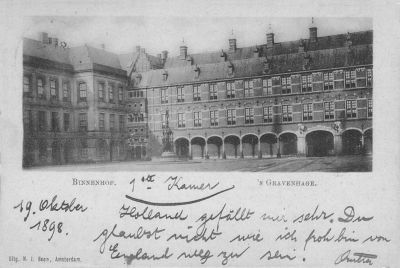 BINNENHOF. 1ste Kamer 'S GRAVENHAGE.
19. Oktober
1898.
Holland gefällt mir sehr. Du
glaubst nicht wie ich froh bin von
England weg zu sein.
Uitg. N. J. Boon, Amsterdam.